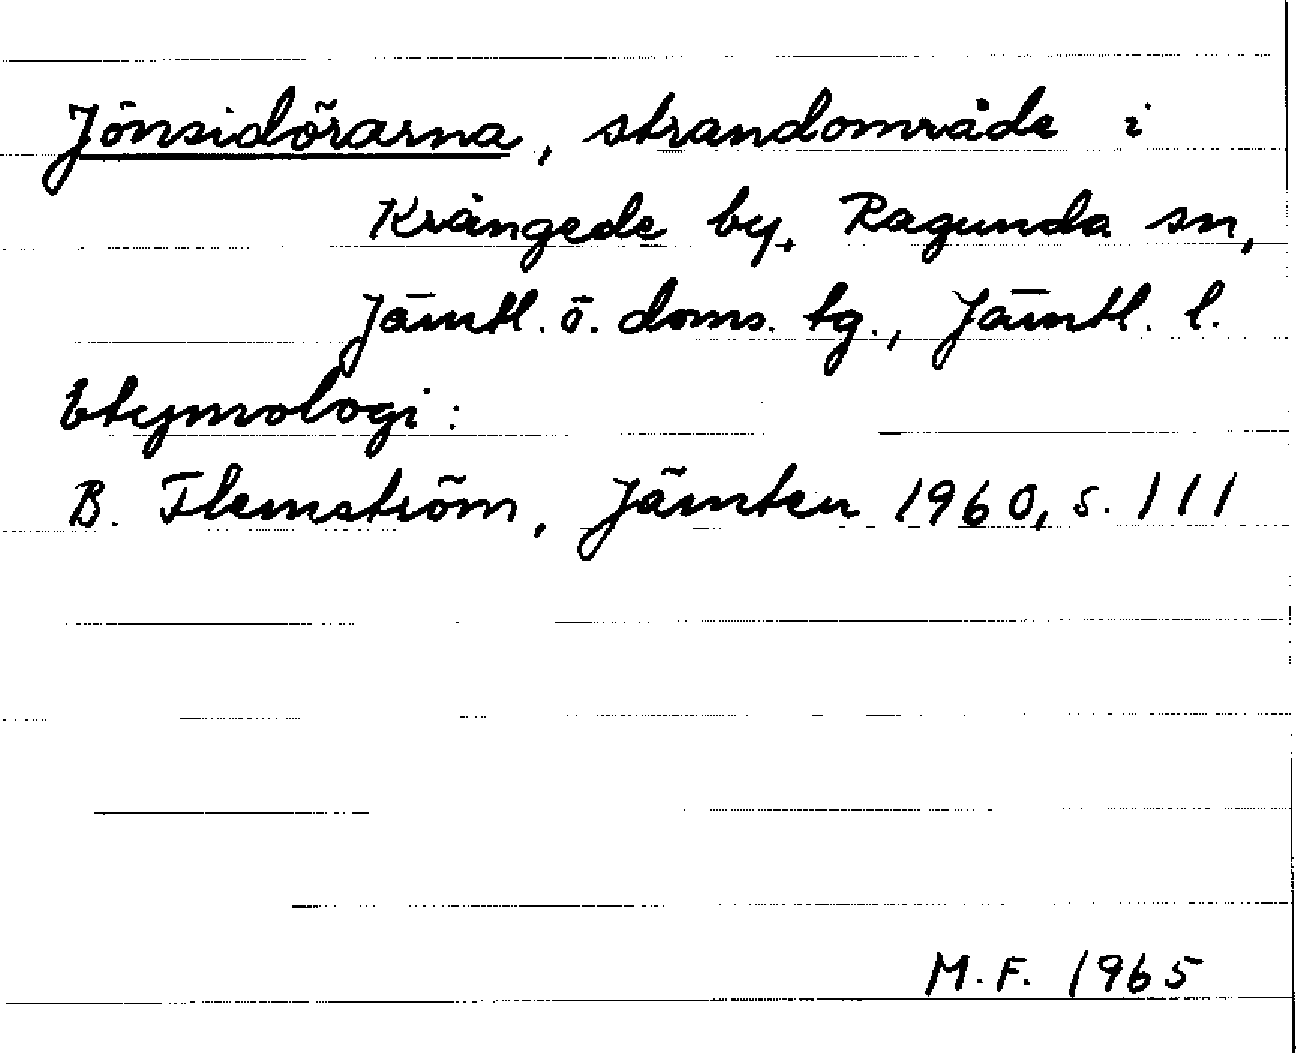 Jönsidörarna, strandområde i
Krångede by, Ragunda sn,
Jämtl. ö. doms. tg., Jämtl. l.
Etymologi:
B. Flemström, Jämten 1960, s. 111
M.F. 1965